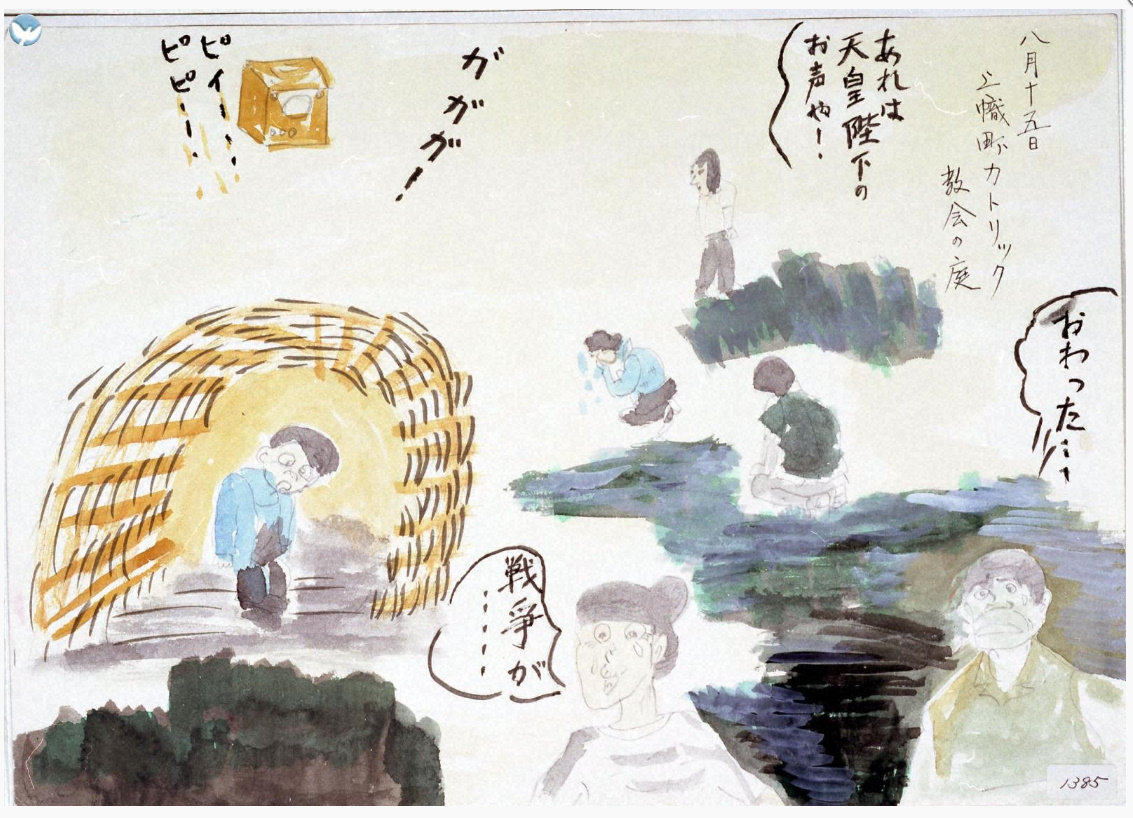 八月十五日
上幟町カトリック
教会の庭
おわった…!
あれは
天皇陛下の
お声や!
ガガガ!
ピイー…
ピピー…
戦争が
……
1385